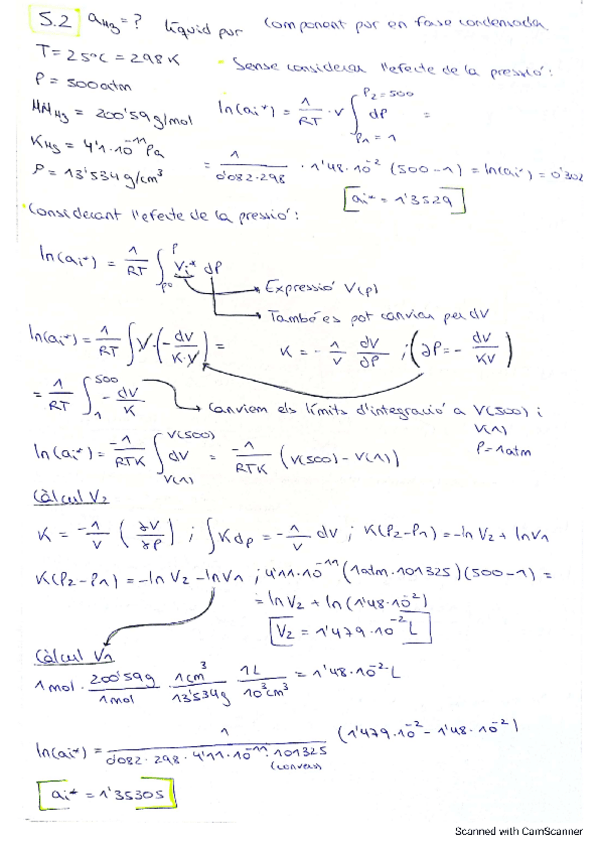 5.2 aHg = ? líquid pur Component pur en fase condensada
T = 25ºC = 298 K
P = 500 atm
MMHg = 200'59 g/mol
KHg = 4'1·10⁻¹¹ Pa
ρ = 13'534 g/cm³
Sense considerar l'efecte de la pressió:
ln(ai*) = 1/RT · V ∫ P1=1 P2=500 dP =
= 1/0'082·298 · 1'48·10⁻² (500-1) = ln(ai*) = 0'302
ai* = 1'3529
Considerant l'efecte de la pressió:
ln(ai*) = 1/RT ∫ pº P Vi* dP
Expressió V(p)
També es pot canviar per dV
ln(ai*) = 1/RT ∫ V·(-dV/K·V) = K = -1/V dV/∂P ; (∂P = - dV/KV)
= 1/RT ∫ 1 500 - dV/K Canviem els límits d'integració a V(500) i V(1)
P = 1 atm
ln(ai*) = -1/RTK ∫ V(1) V(500) dV = -1/RTK (V(500) - V(1))
Càlcul V2
K = -1/V (∂V/∂P) ; ∫K dp = -1/V dV ; K(P2-P1) = -ln V2 + ln V1
K(P2-P1) = -ln V2 - ln V1 ; 4'11·10⁻¹¹ (1atm·101325)(500-1) =
= ln V2 + ln(1'48·10⁻²)
V2 = 1'479·10⁻² L
Càlcul V1
1 mol · 200'59g/1mol · 1cm³/13'534g · 1L/10³cm³ = 1'48·10⁻² L
ln(ai*) = 1/0'082·298·4'11·10⁻¹¹·101325 (1'479·10⁻² - 1'48·10⁻²)
ai* = 1'35305
Scanned with CamScanner